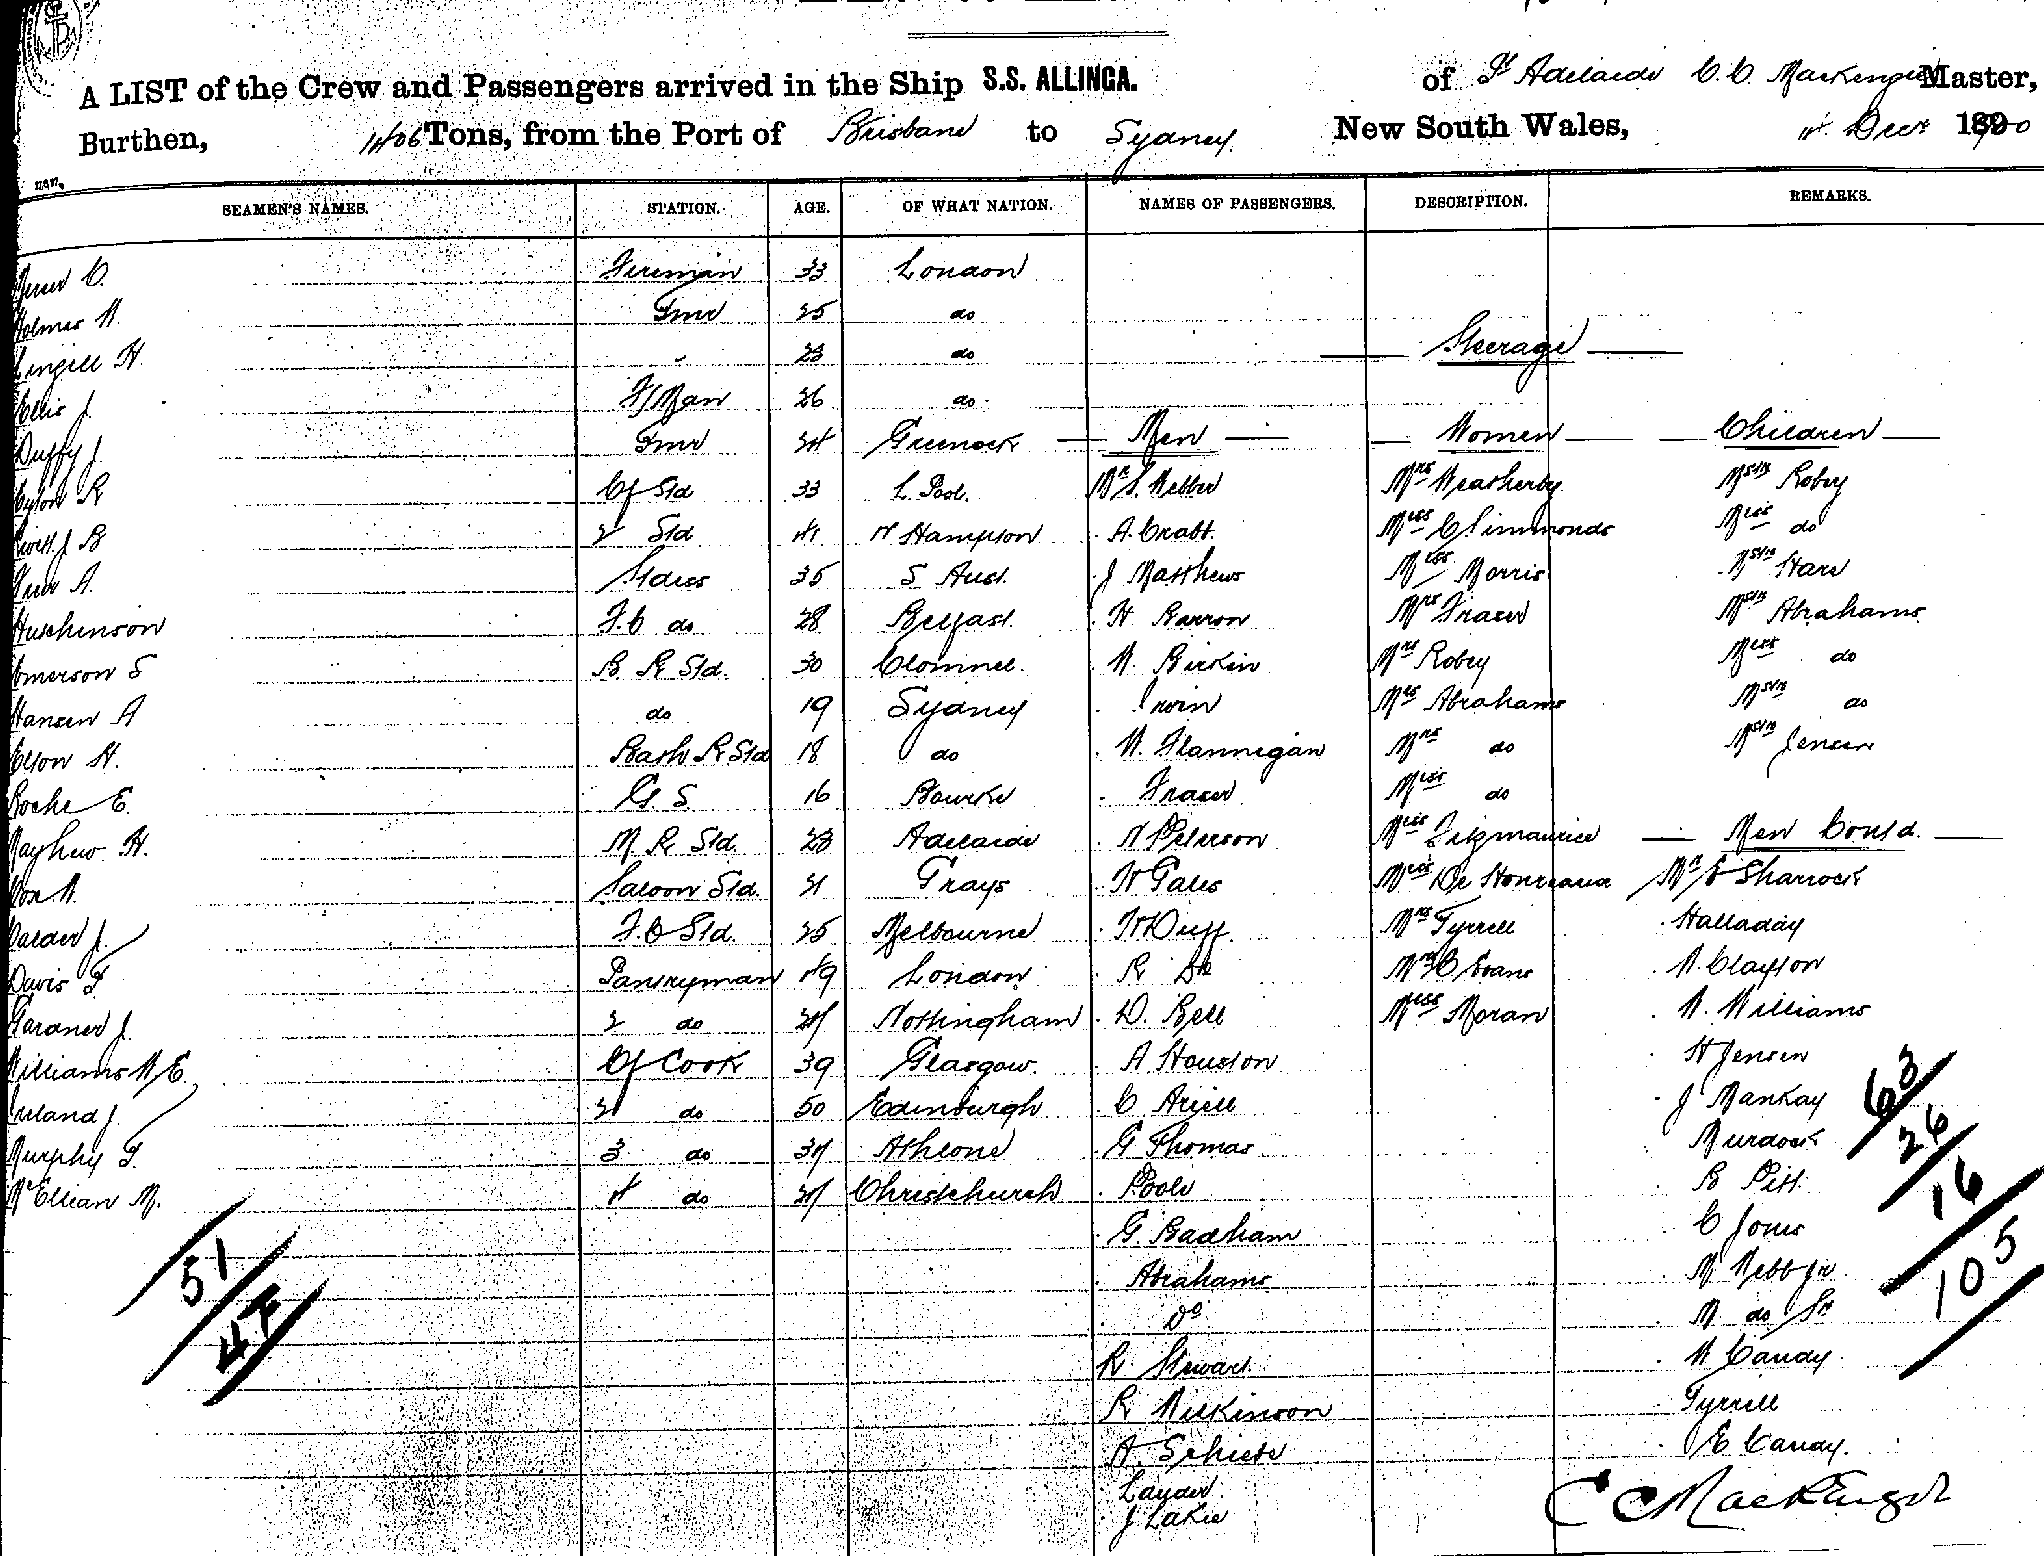 A LIST of the Crew and Passengers arrived in the Ship S.S. ALLINGA. of Pt Adelaide C. C. Mackenzie Master,
Burthen, Tons, from the Port of Brisbane to Sydney New South Wales, Decr
SEAMEN'S NAMES. STATION. AGE. OF WHAT NATION. NAMES OF PASSENGERS. DESCRIPTION. REMARKS.
C. Fireman 33 London
Holmes W. Fmn 25 do
H. " 23 do Steerage
Ellis J. 26 do
Duffy J. Fmn 24 Greenock Men Women Children
R Cf Std 33 L. Pool. Mr S. Webber Mrs Weatherby Mstr Robey
J B 2 Std 41 N Hampton A. Crabt. Miss C Simmonds Miss do
A. Stdess 35 S Aust. J Matthews Miss Morris Mstr Hare
Hutchinson F. C do 28 Belfast. H Barron Mrs Fraser Mstr Abrahams
Emerson S B. R Std. 30 Clonmel. W. Birkin Mrs Robey Miss do
Hansen A do 19 Sydney Irwin Mrs Abrahams Mstr do
Elson H. Bath R Std 18 do W. Flannigan Mrs do Mstr Jensen
Roche E. G. S. 16 Bourke Fraser Miss do
Mayhew H. M. R Std. 23 Adelaide N Peterson Miss Fitzmaurice Men Contd.
W. Saloon Std. 21 Grays W Gales Miss De Mr E Sharrock
Calder J. F. C Std. 25 Melbourne W Duff Mrs Tyrrell Halladay
Davis F. Pantryman 49 London R Do Mrs C Evans W. Clayton
Gardner J. 2 do 24 Nottingham D. Bell Miss Moran W. Williams
Williams W E. Cf Cook 39 Glasgow. A Houston H Jensen
Ireland J. 2 do 50 Edinburgh C Ariell J Mankay 63
Murphy F. 3 do 34 Athlone G Thomas Murdock 26
McEllian M. 4 do 24 Christchurch Poole B Pitt 16
G. Badham C Jones
51 Abrahams W Webb Jr 105
47 Do W do Sr
R Stewart. W Candy.
R Wilkinson Tyrrell
A. Schiede E Candy.
Lauder. C C Mackenzie
J Lakie